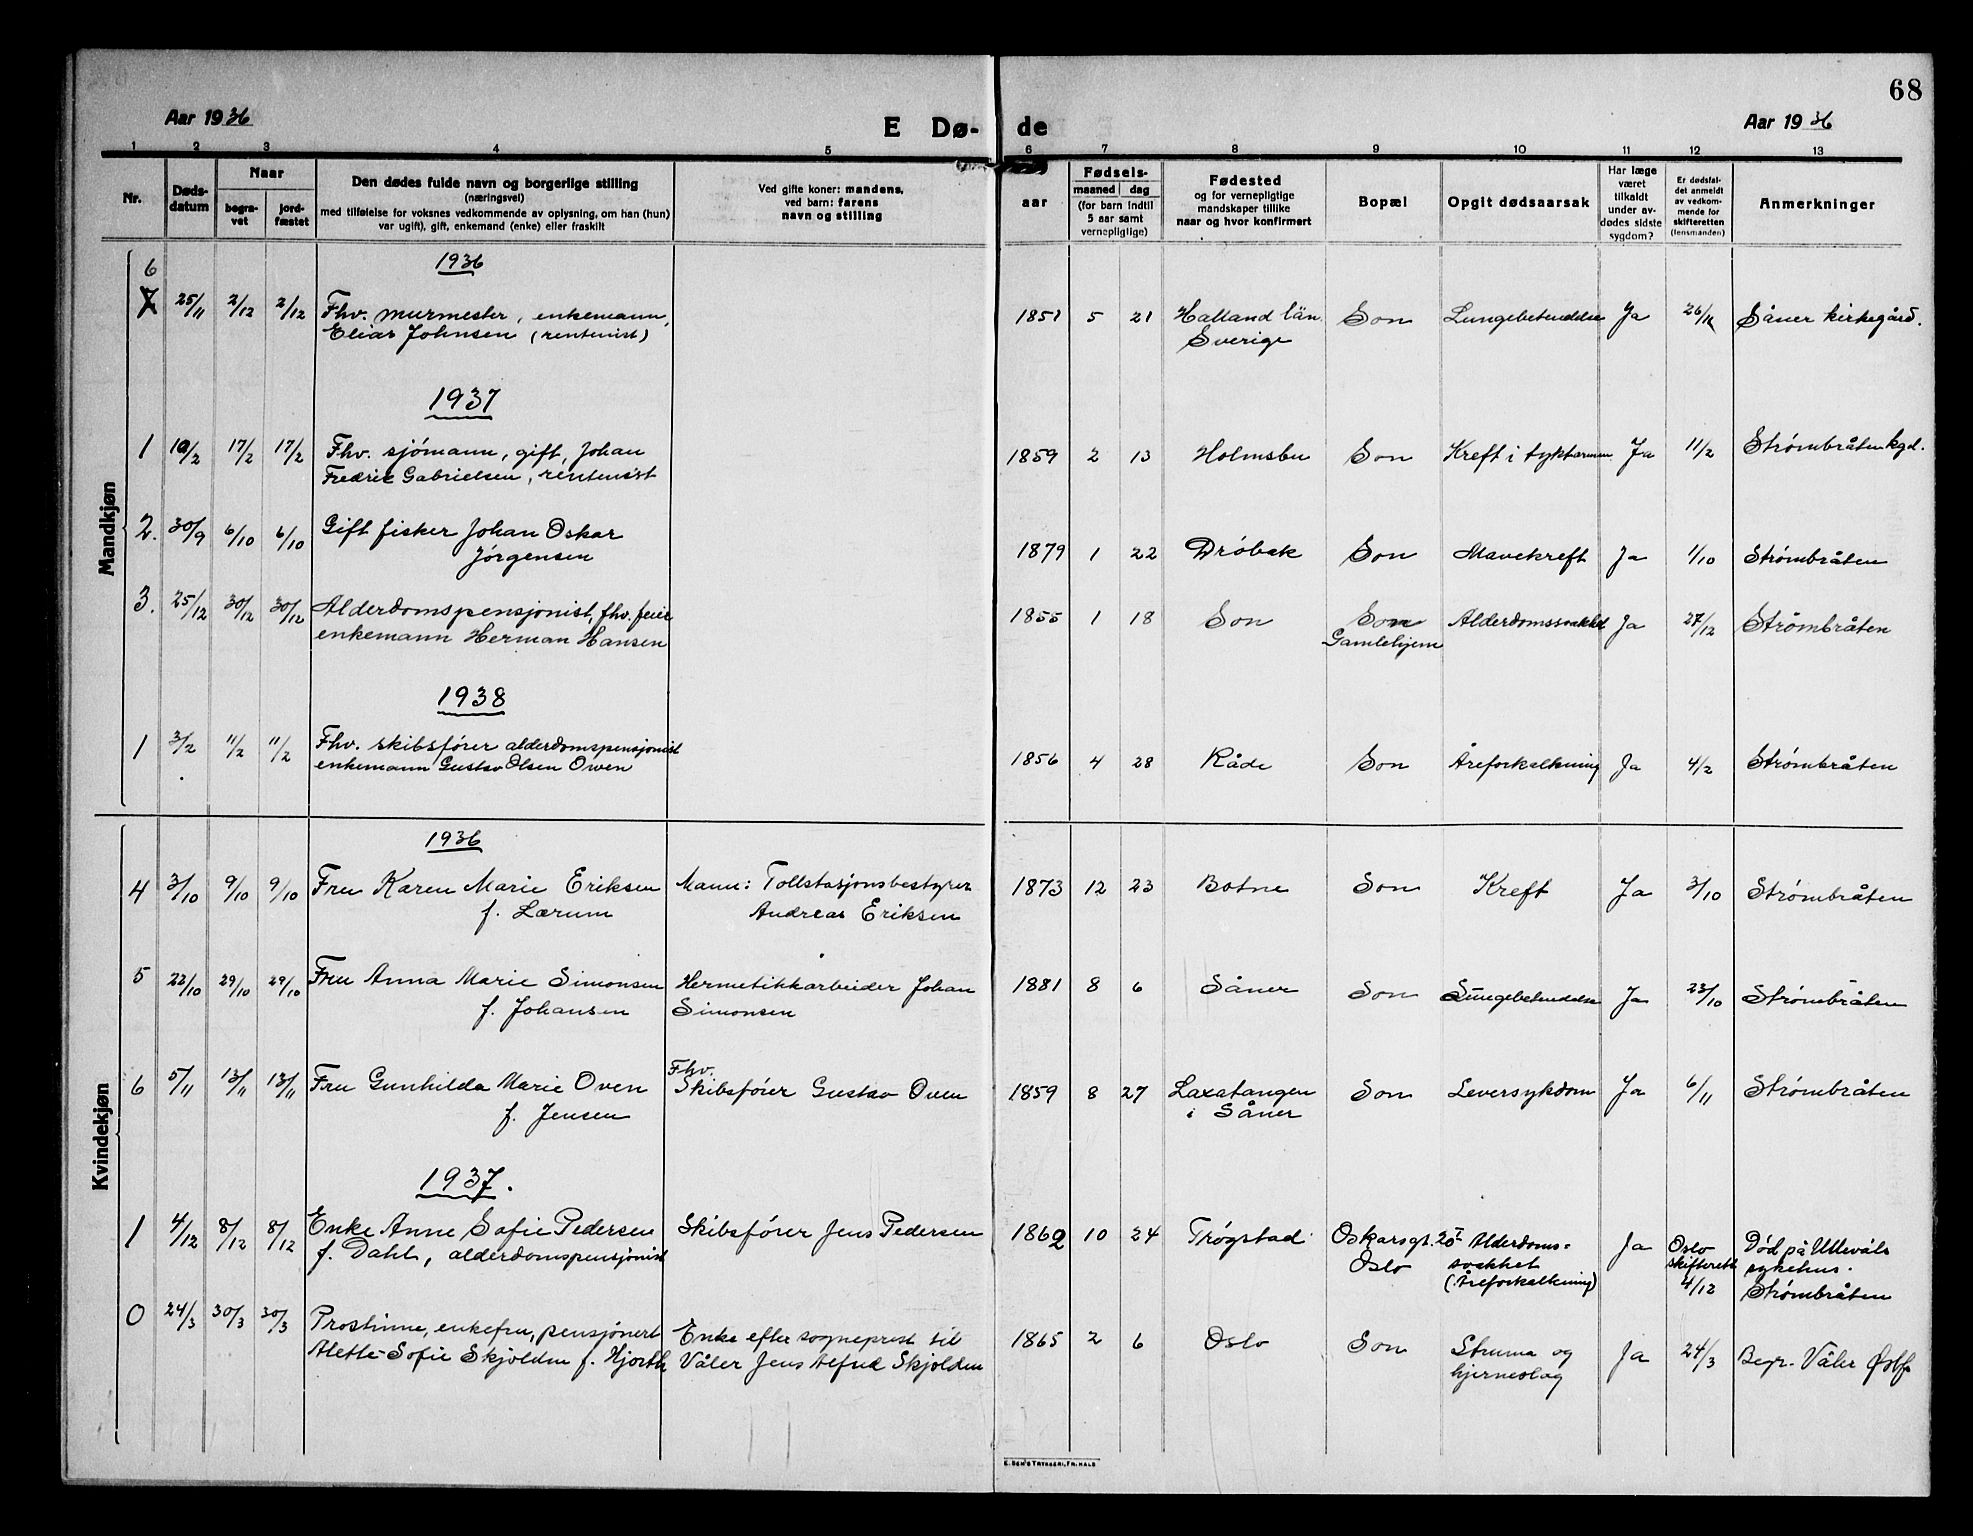 68
Aar 1936
E Dø-
de
Aar 1936
1 2 3 4 5 6 7 8 9 10 11 12 13
Nr.
Døds-
datum
Naar
begra-
vet
jord-
fæstet
Den dødes fulde navn og borgerlige stilling
(næringsvei)
med tilføielse for voksnes vedkommende av oplysning, om han (hun)
var ugift), gift, enkemand (enke) eller fraskilt
Ved gifte koner: mandens,
ved barn: farens
navn og stilling
aar
Fødsels-
maaned dag
(for barn indtil
5 aar samt
vernepligtige)
Fødested
og for vernepligtige
mandskaper tillike
naar og hvor konfirmert
Bopæl
Opgit dødsaarsak
Har læge
været
tilkaldt
under av-
dødes sidste
sygdom?
Er dødsfal-
det anmeldt
av vedkom-
mende for
skifteretten
(lensmanden)
Anmerkninger
Mandkjøn
1936
6
7 25/11 2/12 2/12 Fhv. murmester, enkemann, 1851 5 21 Halland län Son Lungebetendelse Ja 26/11 Såner kirkegård.
Elias Johnsen (rentenist) Sverige
1937
1 10/2 17/2 17/2 Fhv. sjómann, gift, Johan 1859 2 13 Holmsbu Son Kreft i tyktarmen Ja 11/2 Strømbråten kgd.
Fredrik Gabrielsen, rentenist
2. 30/9 6/10 6/10 Gift fisker Johan Oskar 1879 1 22 Dróbak Son Mavekreft Ja 1/10 Strømbråten
Jórgensen
3. 25/12 30/12 30/12 Alderdomspensjonist, fhv. feier 1855 1 18 Son Son Alderdomssvakhet Ja 27/12 Strømbråten
enkemann Herman Hansen Gamlehjem
1938
1 3/2 11/2 11/2 Fhv. skibsfórer alderdomspensjonist 1856 4 28 Råde Son Åreforkalkning Ja 4/2 Strømbråten
enkemann Gustav Olsen Owen
Kvindekjøn
1936
4 3/10 9/10 9/10 Fru Karen Marie Eriksen Mann: Tollstasjonsbestyrer 1873 12 23 Botne Son Kreft Ja 3/10 Strømbråten
f. Lærum Andreas Eriksen
5 22/10 29/10 29/10 Fru Anna Marie Simonsen Hermetikkarbeider Johan 1881 8 6 Såner Son Lungebetendelse Ja 23/10 Strømbråten
f. Johansen Simonsen
Fhv.
6 5/11 13/11 13/11 Fru Gunhilda Marie Oven Skibsfórer Gustav Oven 1859 8 27 Laxatangen Son Leversykdom Ja 6/11 Strømbråten
f. Jensen i Såner
1937.
1 4/12 8/12 8/12 Enke Anne Sofie Pedersen Skibsfórer Jens Pedersen 1862 10 24 Trógstad Oskarsgt. 20 I Alderdoms- Ja Oslo Dód på Ullevåls
f. Dahl, alderdomspensjonist Oslo svakhet skifterett sykehus.
(Åreforkalkning) 4/12 Strømbråten
0 24/3 30/3 30/3 Prostinne, enkefru, pensjonert Enke efter sogneprest til 1865 2 6 Oslo Son Struma og Ja 24/3 Begr. Våler Østf.
Alette Sofie Skjolden f. Hjorth Våler Jens Skjolden hjerneslag